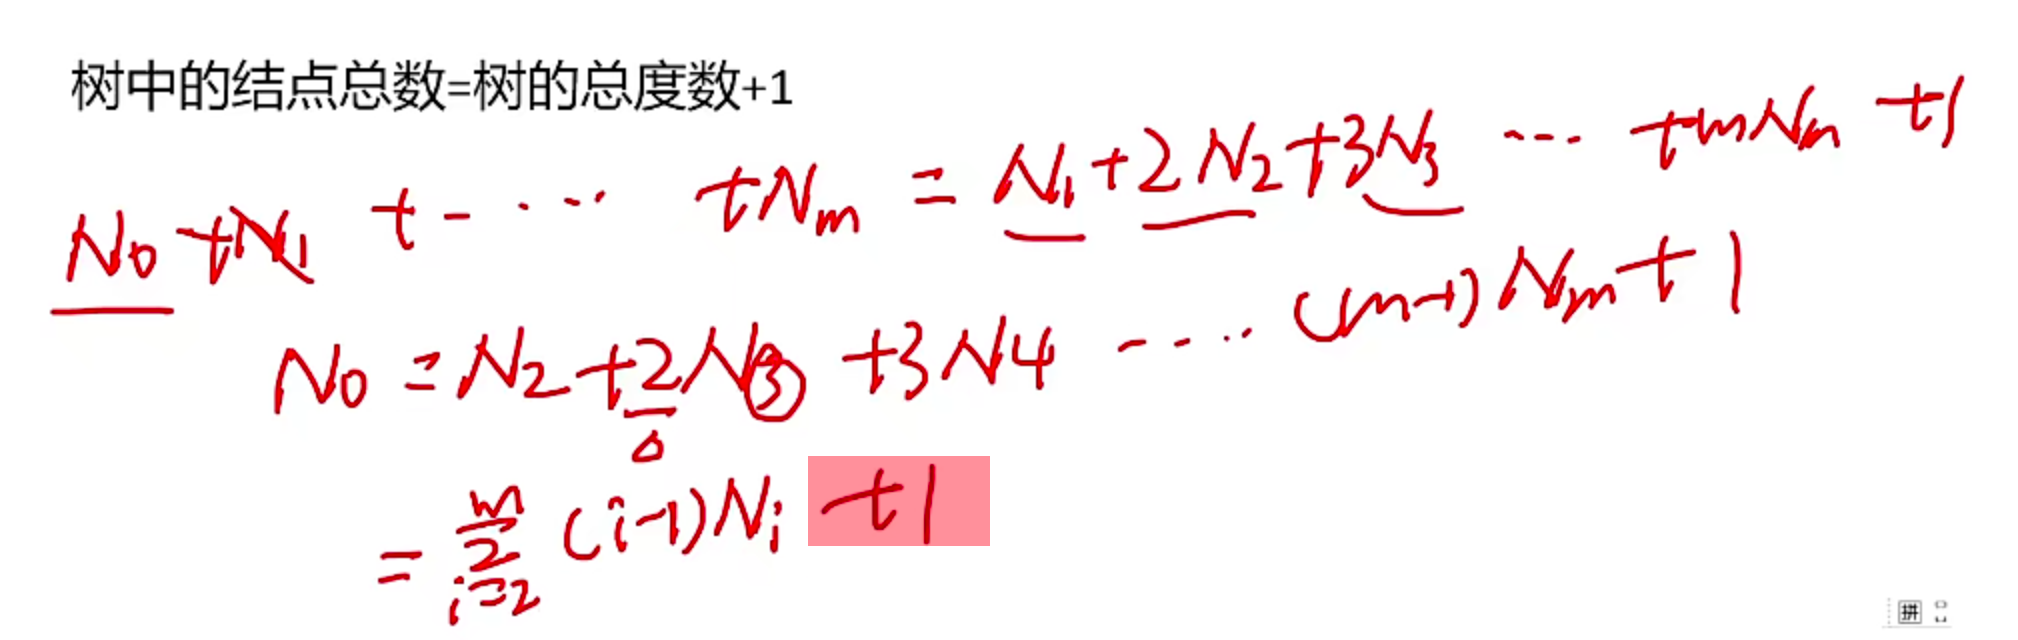 树中的结点总数=树的总度数+1
N0 +N1 + - ··· +Nm = N1 +2N2 +3N3 ··· +mNm +1
N0 = N2 +2N3 +3N4 ---- (m-1)Nm +1
= m Σ i=2 (i-1)Ni +1
拼